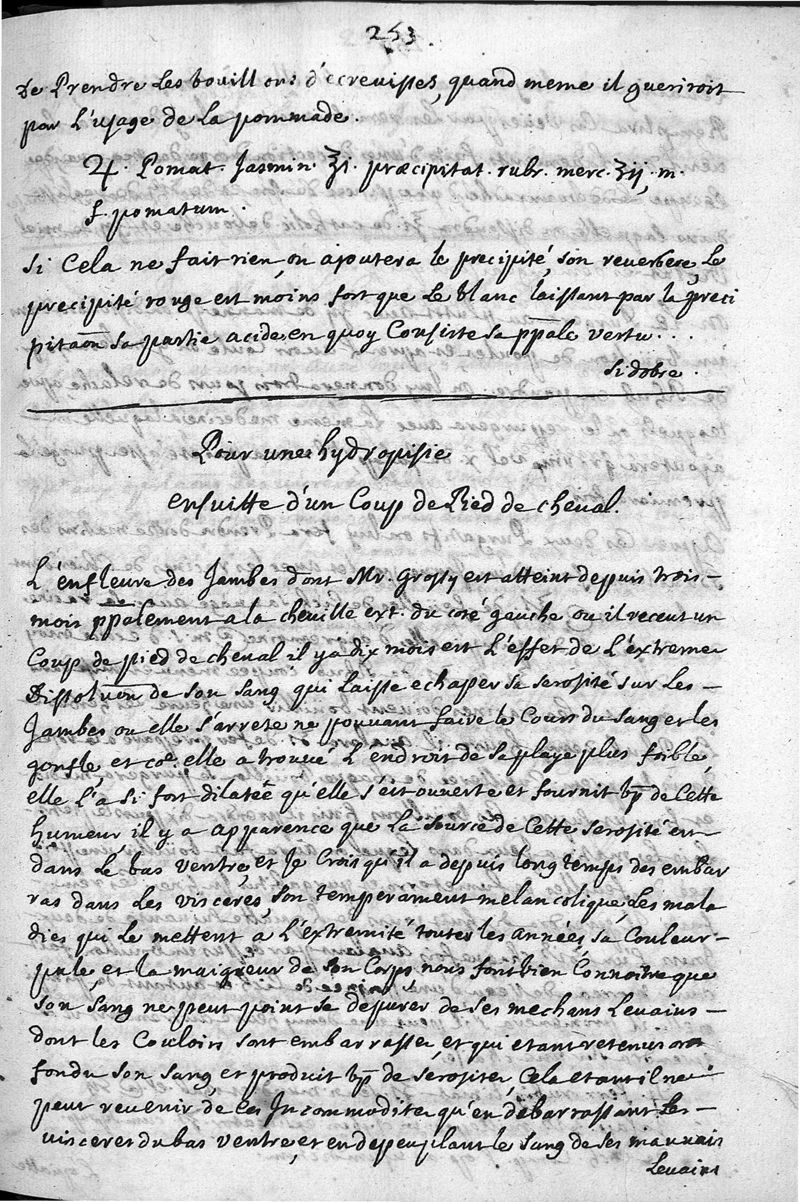 253.
De Prendre Les bouillons d'écrevisses, quand meme il gueriroit
par L'usage de La pommade.
♃. Pomat. Jasmin. ℥i. præcipitat. rubr. merc. ʒij, m.
f. pomatum.
Si Cela ne fait rien, on ajoutera le precipité, son reverbere, Le
precipité rouge est moins fort que Le blanc laissant par la preci
pitaõn sa partie acide, en quoy Consiste sa pp̃ale vertu...
Sidobre.
Pour une hydropisie
ensuitte d'un Coup de Pied de cheval.
L'enfleure des Jambes dont Mr. Grossy est atteint depuis trois
mois pp̃alement a la cheville ext. du coté gauche ou il receut un
Coup de pied de cheval il y a dix mois est L'effet de L'extreme
Dissolũon de son sang qui Laisse echaper sa serosité sur Les
Jambes ou elle s'arrete ne pouvant faire le Cours du sang et les
gonfle, et coẽ. elle a trouué L'endroit de sa playe plus foible,
elle L'a si fort dilatée qu'elle s'est ouverte et fournit bp̃ de Cette
humeur, il y a apparence que La source de Cette serosité est
dans Le bas ventre, et Je Crois qu'il a depuis long temps des embar
ras dans Les visceres, son temperament melancolique, Les mala
dies qui Le mettent a L'extremité toutes les années, sa Couleur
pale, et la maigreur de son Corps nous font bien Connoitre que
son sang ne peut point se depurer de ses mechans Levains
dont les Couloirs sont embarrasses, et qui etant retenus ont
fondu son sang, et produit bp̃ de serosites, Cela etant il ne
peut revenir de ces Incommodites qu'en débarrassant Les
visceres du bas ventre, et en depeuplant le sang de ses mauvais
Levains